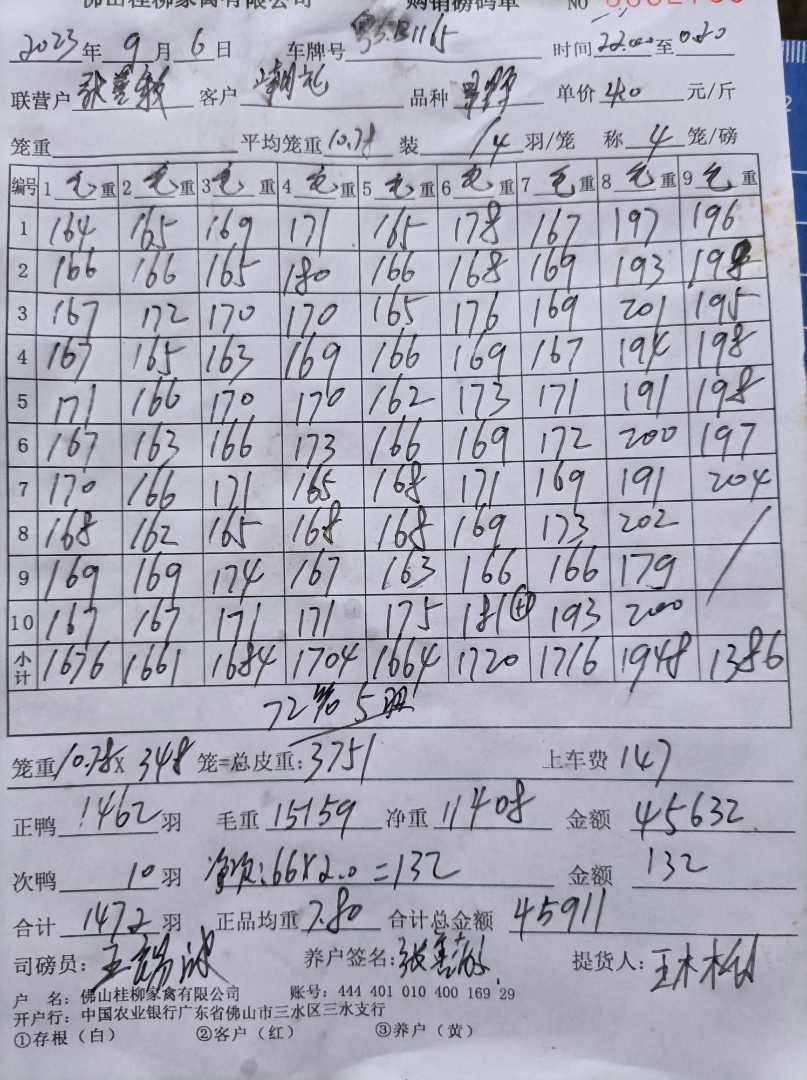 佛山桂柳家禽有限公司 购销磅码单 NO
2023年9月6日 车牌号 B1165 时间22:00至0:20
联营户 张 客户 品种 单价4.0元/斤
笼重 平均笼重10.78 装14羽/笼 称4笼/磅
编号 1毛重 2毛重 3毛重 4毛重 5毛重 6毛重 7毛重 8毛重 9毛重
1 164 165 169 171 165 178 167 197 196
2 166 166 165 180 166 168 169 193 198
3 167 172 170 170 165 176 169 201 195
4 167 165 163 169 166 169 167 194 198
5 171 166 170 170 162 173 171 191 198
6 167 163 166 173 166 169 172 200 197
7 170 166 171 165 168 171 169 191 204
8 168 162 165 168 168 169 173 202
9 169 169 174 167 163 166 166 179
10 167 167 171 171 175 181 193 200
小计 1676 1661 1684 1704 1664 1720 1716 1948 1386
72笼5羽
笼重10.78X348笼=总皮重:3751 上车费147
正鸭1462羽 毛重15159 净重11408 金额45632
次鸭10羽 净次:66X2.0=132 金额132
合计1472羽 正品均重7.80 合计总金额45911
司磅员:王 养户签名:张 提货人:王木
户 名:佛山桂柳家禽有限公司 账号:444 401 010 400 169 29
开户行:中国农业银行广东省佛山市三水区三水支行
①存根(白) ②客户(红) ③养户(黄)